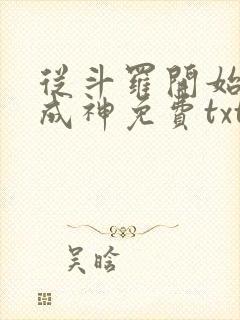 從斗羅開始
成神免費txt
吴晗